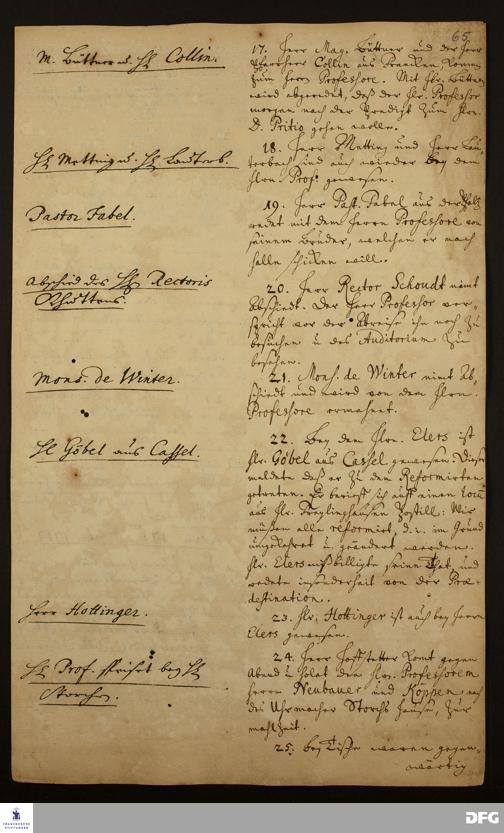 65.
M. Büttner u. H. Collin.
17. Herr Mag. Büttner und der Herr
Pfarrherr Collin aus Francken kommen
zum Herrn Professore. Mit Hr. Büttner
wird abgeredet, daß der Hr. Professor
morgen nach der Predigt zum Hrn.
D. Pritio gehen wolle.
H. Metting u. H. Lauterb.
18. Herr Metting und Herr Lau-
terbach sind auch wieder bey dem
Hrn. Prof. gewesen.
Pastor Fabel.
19. Herr Past. Fabel aus der Pfaltz
redet mit dem Herrn Professore von
seinem Bruder, welchen er nach
Halle schicken will.
Abschied des H. Rectoris
Schuttens.
20. Herr Rector Schoudt nimt
Abschiedt. Der Herr Professor ver-
spricht vor der Abreise ihn noch zu
besuchen u. das Auditorium zu
besehen.
Mons. de Winter.
21. Mons. de Winter nimt Ab-
schiedt und wird von dem Hrn.
Professore ermahnet.
H. Göbel aus Cassel.
22. Bey dem Hrn. Elers ist
Hr. Göbel aus Cassel gewesen. Dieser
meldete daß er zu den Reformirten
getreten. Er berieff sich auff einen
aus Hr. Freylinghausen Postill: Wir
müßen alle reformirt, d. i. im Grund
umgekehret u. geändert werden.
Hr. Elers mißbilligte seine That, und
redete insonderheit von der Præ-
destination.
Herr Hottinger.
23. Hr. Hottinger ist auch bey Herrn
Elers gewesen.
H. Prof. speiset bey H.
Storchs.
24. Herr Hoffstetter komt gegen
Abend u. holet den Hrn. Professorem
Herrn Neubauer und Köppen nach
des Uhrmacher Storchs Hause, zur
mahlzeit.
25. bey Tische waren gegen-
wärtig
FRANCKESCHE
STIFTUNGEN
DFG